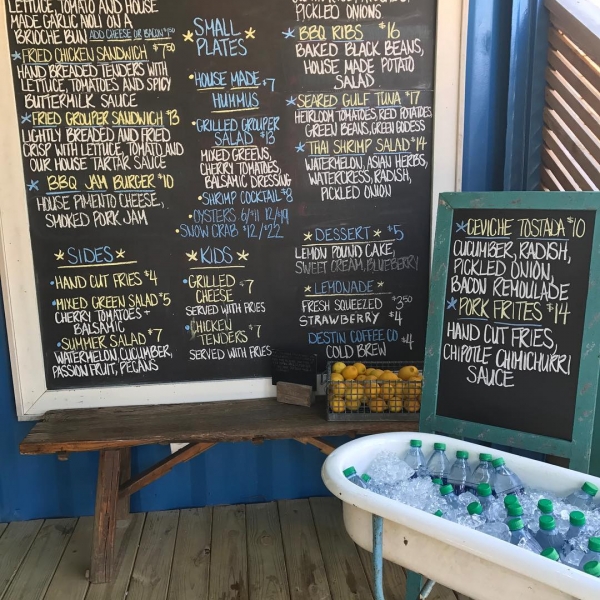 LETTUCE, TOMATO AND HOUSE
MADE GARLIC AIOLI ON A
BRIOCHE BUN ADD CHEESE OR BACON $1.50
FRIED CHICKEN SANDWICH $7.50
HAND BREADED TENDERS WITH
LETTUCE, TOMATOES AND SPICY
BUTTERMILK SAUCE
FRIED GROUPER SANDWICH $13
LIGHTLY BREADED AND FRIED
CRISP WITH LETTUCE, TOMATO AND
OUR HOUSE TARTAR SAUCE
BBQ JAM BURGER $10
HOUSE PIMENTO CHEESE,
SMOKED PORK JAM
SIDES
HAND CUT FRIES $4
MIXED GREEN SALAD $5
CHERRY TOMATOES +
BALSAMIC
SUMMER SALAD $7
WATERMELON, CUCUMBER,
PASSION FRUIT, PECANS
SMALL
PLATES
HOUSE MADE $7
HUMMUS
GRILLED GROUPER
SALAD $13
MIXED GREENS,
CHERRY TOMATOES,
BALSAMIC DRESSING
SHRIMP COCKTAIL $8
OYSTERS 6/$11 12/$19
SNOW CRAB $12/$22
KIDS
GRILLED $7
CHEESE
SERVED WITH FRIES
CHICKEN
TENDERS $7
SERVED WITH FRIES
PICKLED ONIONS
BBQ RIBS $16
BAKED BLACK BEANS,
HOUSE MADE POTATO
SALAD
SEARED GULF TUNA $17
HEIRLOOM TOMATOES, RED POTATOES
GREEN BEANS, GREEN GODESS
THAI SHRIMP SALAD $14
WATERMELON, ASIAN HERBS,
WATERCRESS, RADISH,
PICKLED ONION
DESSERT $5
LEMON POUND CAKE,
SWEET CREAM, BLUEBERRY
LEMONADE
FRESH SQUEEZED $3.50
STRAWBERRY $4
DESTIN COFFEE CO $4
COLD BREW
CEVICHE TOSTADA $10
CUCUMBER, RADISH,
PICKLED ONION,
BACON REMOULADE
PORK FRITES $14
HAND CUT FRIES,
CHIPOTLE CHIMICHURRI
SAUCE